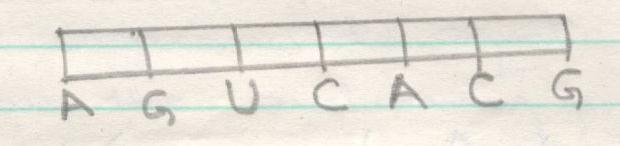 A G U C A C G